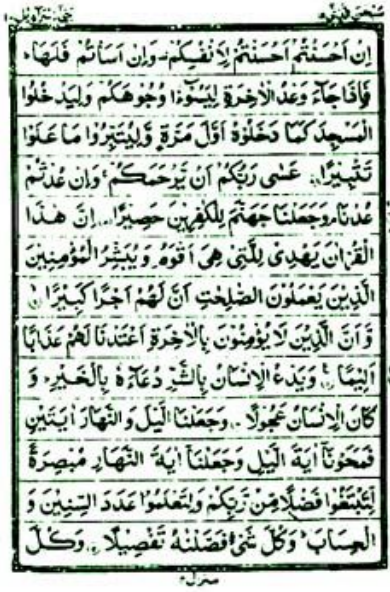 سبحن الذى ١٥ بنى اسرآءيل ١٧
اِنْ اَحْسَنْتُمْ اَحْسَنْتُمْ لِاَنْفُسِكُمْ وَاِنْ اَسَاْتُمْ فَلَهَا
فَاِذَا جَآءَ وَعْدُ الْاٰخِرَةِ لِيَسُوْٓءٗا وُجُوْهَكُمْ وَلِيَدْخُلُوا
الْمَسْجِدَ كَمَا دَخَلُوْهُ اَوَّلَ مَرَّةٍ وَّلِيُتَبِّرُوْا مَا عَلَوْا
تَتْبِيْرًا عَسٰى رَبُّكُمْ اَنْ يَّرْحَمَكُمْ وَاِنْ عُدْتُّمْ
عُدْنَا وَجَعَلْنَا جَهَنَّمَ لِلْكٰفِرِيْنَ حَصِيْرًا اِنَّ هٰذَا
الْقُرْاٰنَ يَهْدِىْ لِلَّتِىْ هِىَ اَقْوَمُ وَيُبَشِّرُ الْمُؤْمِنِيْنَ
الَّذِيْنَ يَعْمَلُوْنَ الصّٰلِحٰتِ اَنَّ لَهُمْ اَجْرًا كَبِيْرًا
وَّاَنَّ الَّذِيْنَ لَا يُؤْمِنُوْنَ بِالْاٰخِرَةِ اَعْتَدْنَا لَهُمْ عَذَابًا
اَلِيْمًا وَيَدْعُ الْاِنْسَانُ بِالشَّرِّ دُعَآءَهٗ بِالْخَيْرِ وَ
كَانَ الْاِنْسَانُ عَجُوْلًا وَجَعَلْنَا الَّيْلَ وَالنَّهَارَ اٰيَتَيْنِ
فَمَحَوْنَآ اٰيَةَ الَّيْلِ وَجَعَلْنَآ اٰيَةَ النَّهَارِ مُبْصِرَةً
لِّتَبْتَغُوْا فَضْلًا مِّنْ رَّبِّكُمْ وَلِتَعْلَمُوْا عَدَدَ السِّنِيْنَ وَ
الْحِسَابَ وَكُلَّ شَىْءٍ فَصَّلْنٰهُ تَفْصِيْلًا وَكُلَّ
منزل ٤